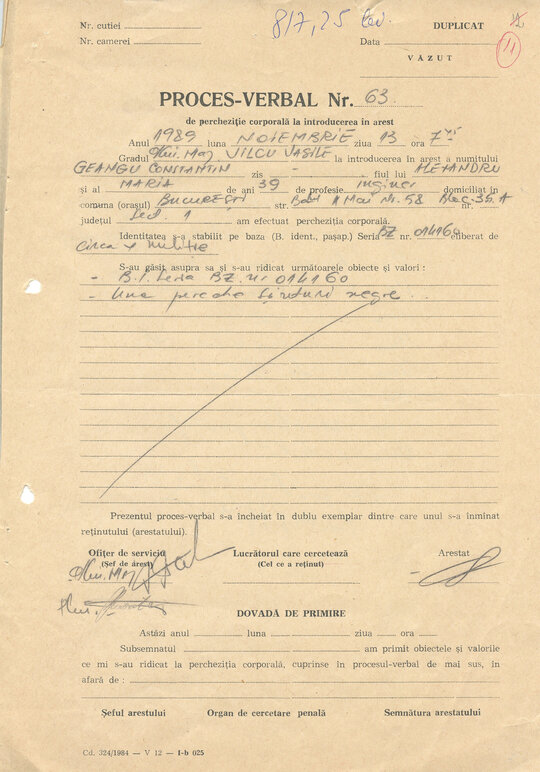 Nr. cutiei
817,25 lei
DUPLICAT
12
Nr. camerei
Data
11
VĂZUT
PROCES-VERBAL Nr. 63
de percheziție corporală la introducerea în arest
Anul 1989 luna NOIEMBRIE ziua 13 ora 7
Gradul Maj. VILCU VASILE la introducerea în arest a numitului
GEANGU CONSTANTIN zis - fiul lui ALEXANDRU
și al MARIA de ani 39 de profesie inginer domiciliat în
comuna (orașul) București str. Bdul 1 Mai Nr. 58 Bloc 35 A
județul Sect 1 am efectuat percheziția corporală.
Identitatea s-a stabilit pe baza (B. ident., pașap.) Seria BZ nr. 014160 eliberat de
Circa 4 Miliție
S-au găsit asupra sa și s-au ridicat următoarele obiecte și valori :
- B.I. Seria BZ. nr 014160
- Una pereche șireturi negre
Prezentul proces-verbal s-a încheiat în dublu exemplar dintre care unul s-a înminat
reținutului (arestatului).
Ofițer de serviciu
Lucrătorul care cercetează
Arestat
(Șef de arest)
(Cel ce a reținut)
DOVADĂ DE PRIMIRE
Astăzi anul luna ziua ora
Subsemnatul am primit obiectele și valorile
ce mi s-au ridicat la percheziția corporală, cuprinse în procesul-verbal de mai sus, în
afară de :
Șeful arestului
Organ de cercetare penală
Semnătura arestatului
Cd. 324/1984 — V 12 — I-b 025